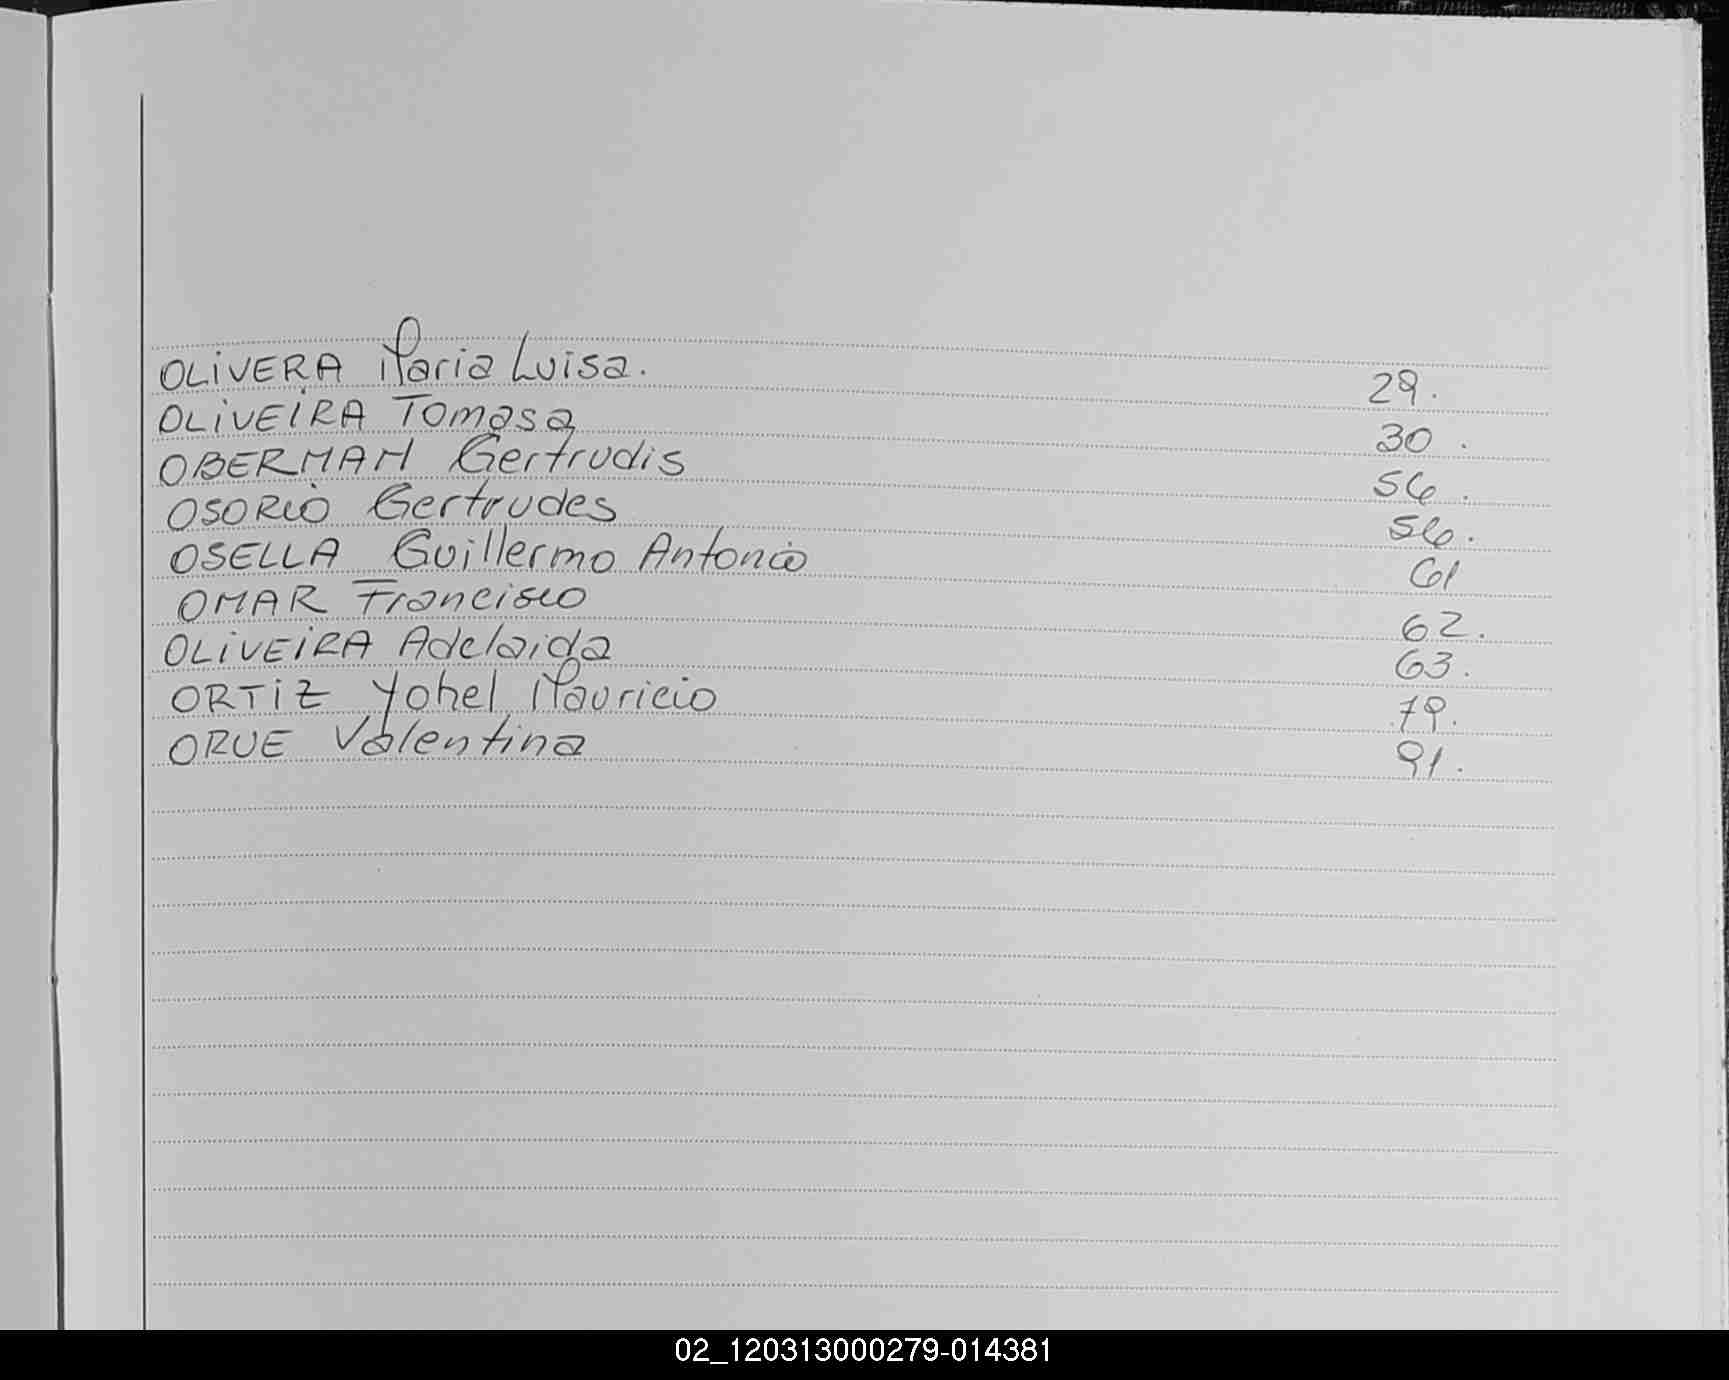 OLIVERA Maria Luisa. 29.
OLIVEIRA Tomasa 30.
OBERMAN Gertrudis 56.
OSORIO Gertrudes 56.
OSELLA Guillermo Antonio 61
OMAR Francisco 62.
OLIVEIRA Adelaida 63.
ORTIZ Yohel Mauricio 79.
ORUE Valentina 91.
02_120313000279-014381